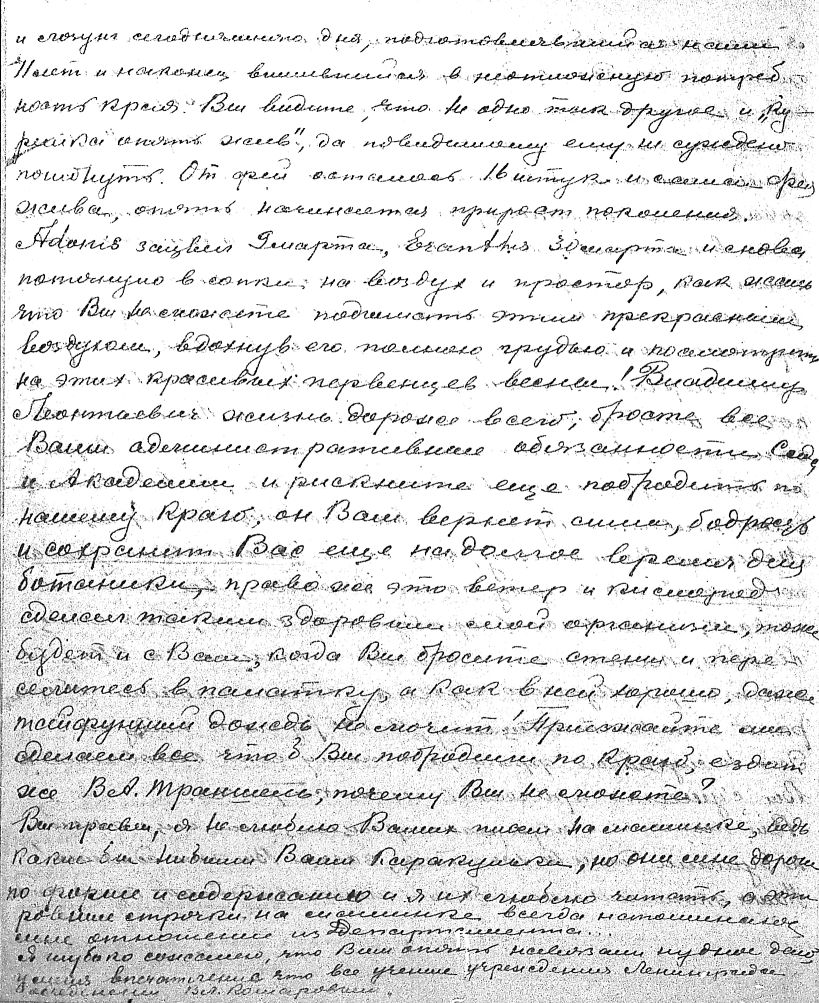 и лозунг сегодняшнего дня, подготовлявшийся нами
лет и наконец вылившийся в неотложную потреб
ность края. Вы видите, что не одно так другое и „Ку
рилка опять жив“, да повидимому ему не суждено
погибнуть. От фей осталось 16 штук и сама фея
жива, опять начинается прирост поколения.
Adonis зацвел 9 марта, Eranthis 30 марта и снова
потянуло в сопки, на воздух и простор, как жаль
что Вы не сможете подышать этим прекрасным
воздухом, вдохнув его полною грудью и посмотреть
на этих красивых первенцев весны! Владимир
Леонтьевич жизнь дороже всего, бросте все
Ваши административные обязанности Сада
и Академии и рискните еще побродить по
нашему Краю, он Вам вернет силы, бодрость
и сохранит Вас еще на долгое время для
ботаники, право же это ветер и кислород
сделал таким здоровым мой организм, тоже
будет и с Вами, когда Вы бросите стены и пере
селитесь в палатку, а как в ней хорошо, даже
тайфунный дождь не мочит! Приезжайте мы
сделаем все что б Вы побродили по Краю, ездит
же В.А. Траншель, почему Вы не сможете?
Вы правы, я не люблю Ваших писем на машинке, ведь
какие бы ни были Ваши Каракульки, но они мне дороги
по форме и содержанию и я их люблю читать, а эти
ровные строчки на машинке всегда напоминают
мне отношения из Департамента...
Я глубоко сожалею, что Вам опять навязали нудное дело
у меня впечатление что все ученые учреждения Ленинграда
В.Л. Комаровым.